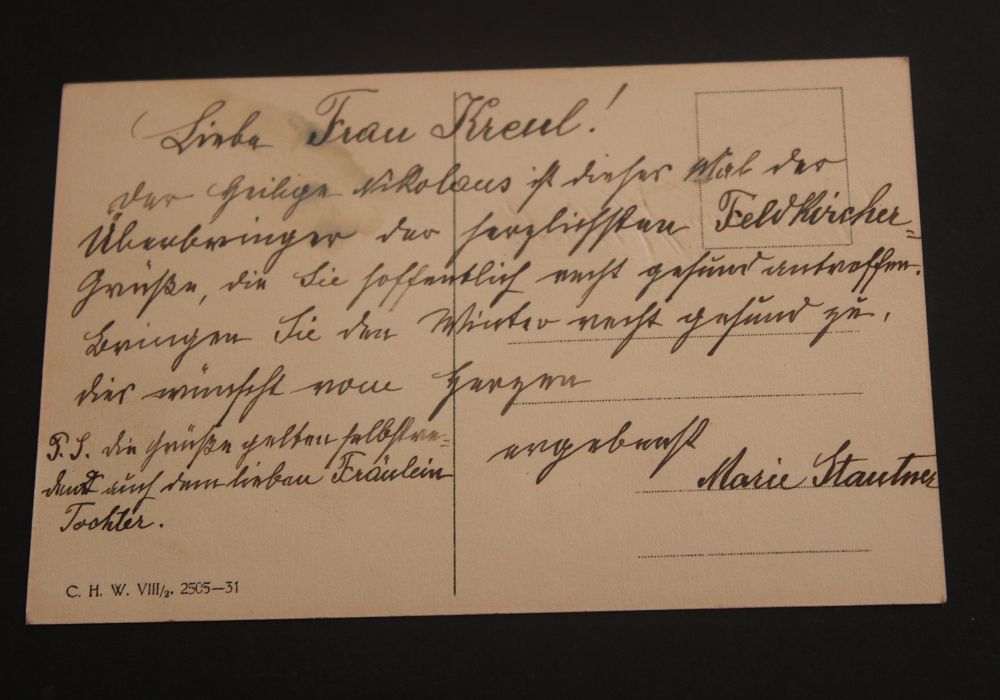 Liebe Frau Kreul!
Der heilige Nikolaus ist dieses Mal der
Überbringer der herzlichsten Feldkircher-
Grüße, die Sie hoffentlich recht gesund antreffen.
Bringen Sie den Winter recht gesund zu,
dies wünscht vom Herzen
ergebenst
Marie Stautner
P.S. die Grüße gelten selbstre-
dend auch dem lieben Fräulein
Tochter.
C. H. W. VIII/2. 2505—31